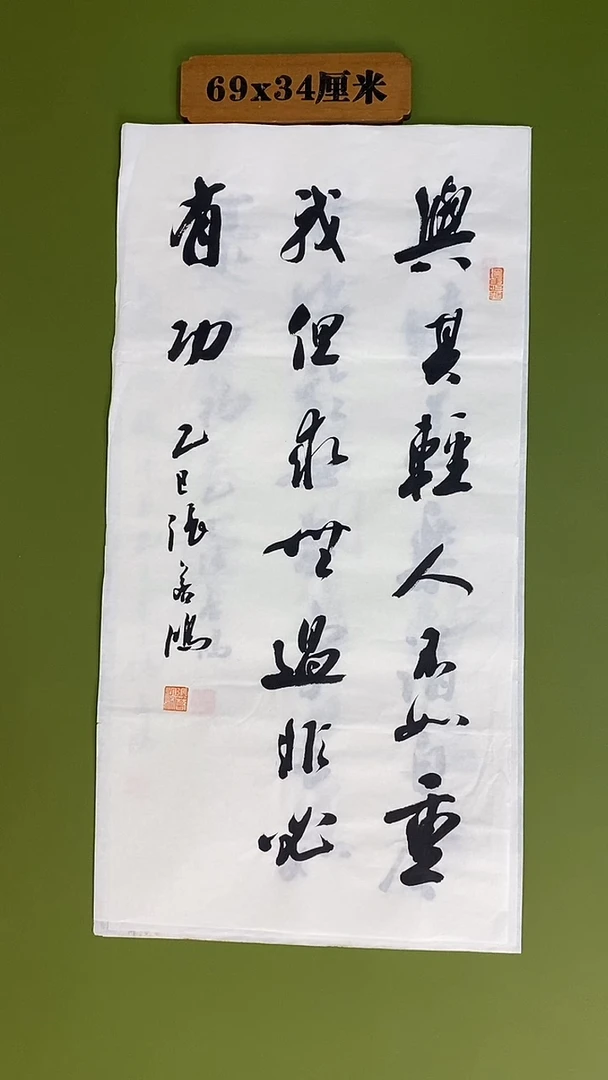 69x34厘米
與其輕人不如重
我但求無過非必
有功 乙巳張鴻